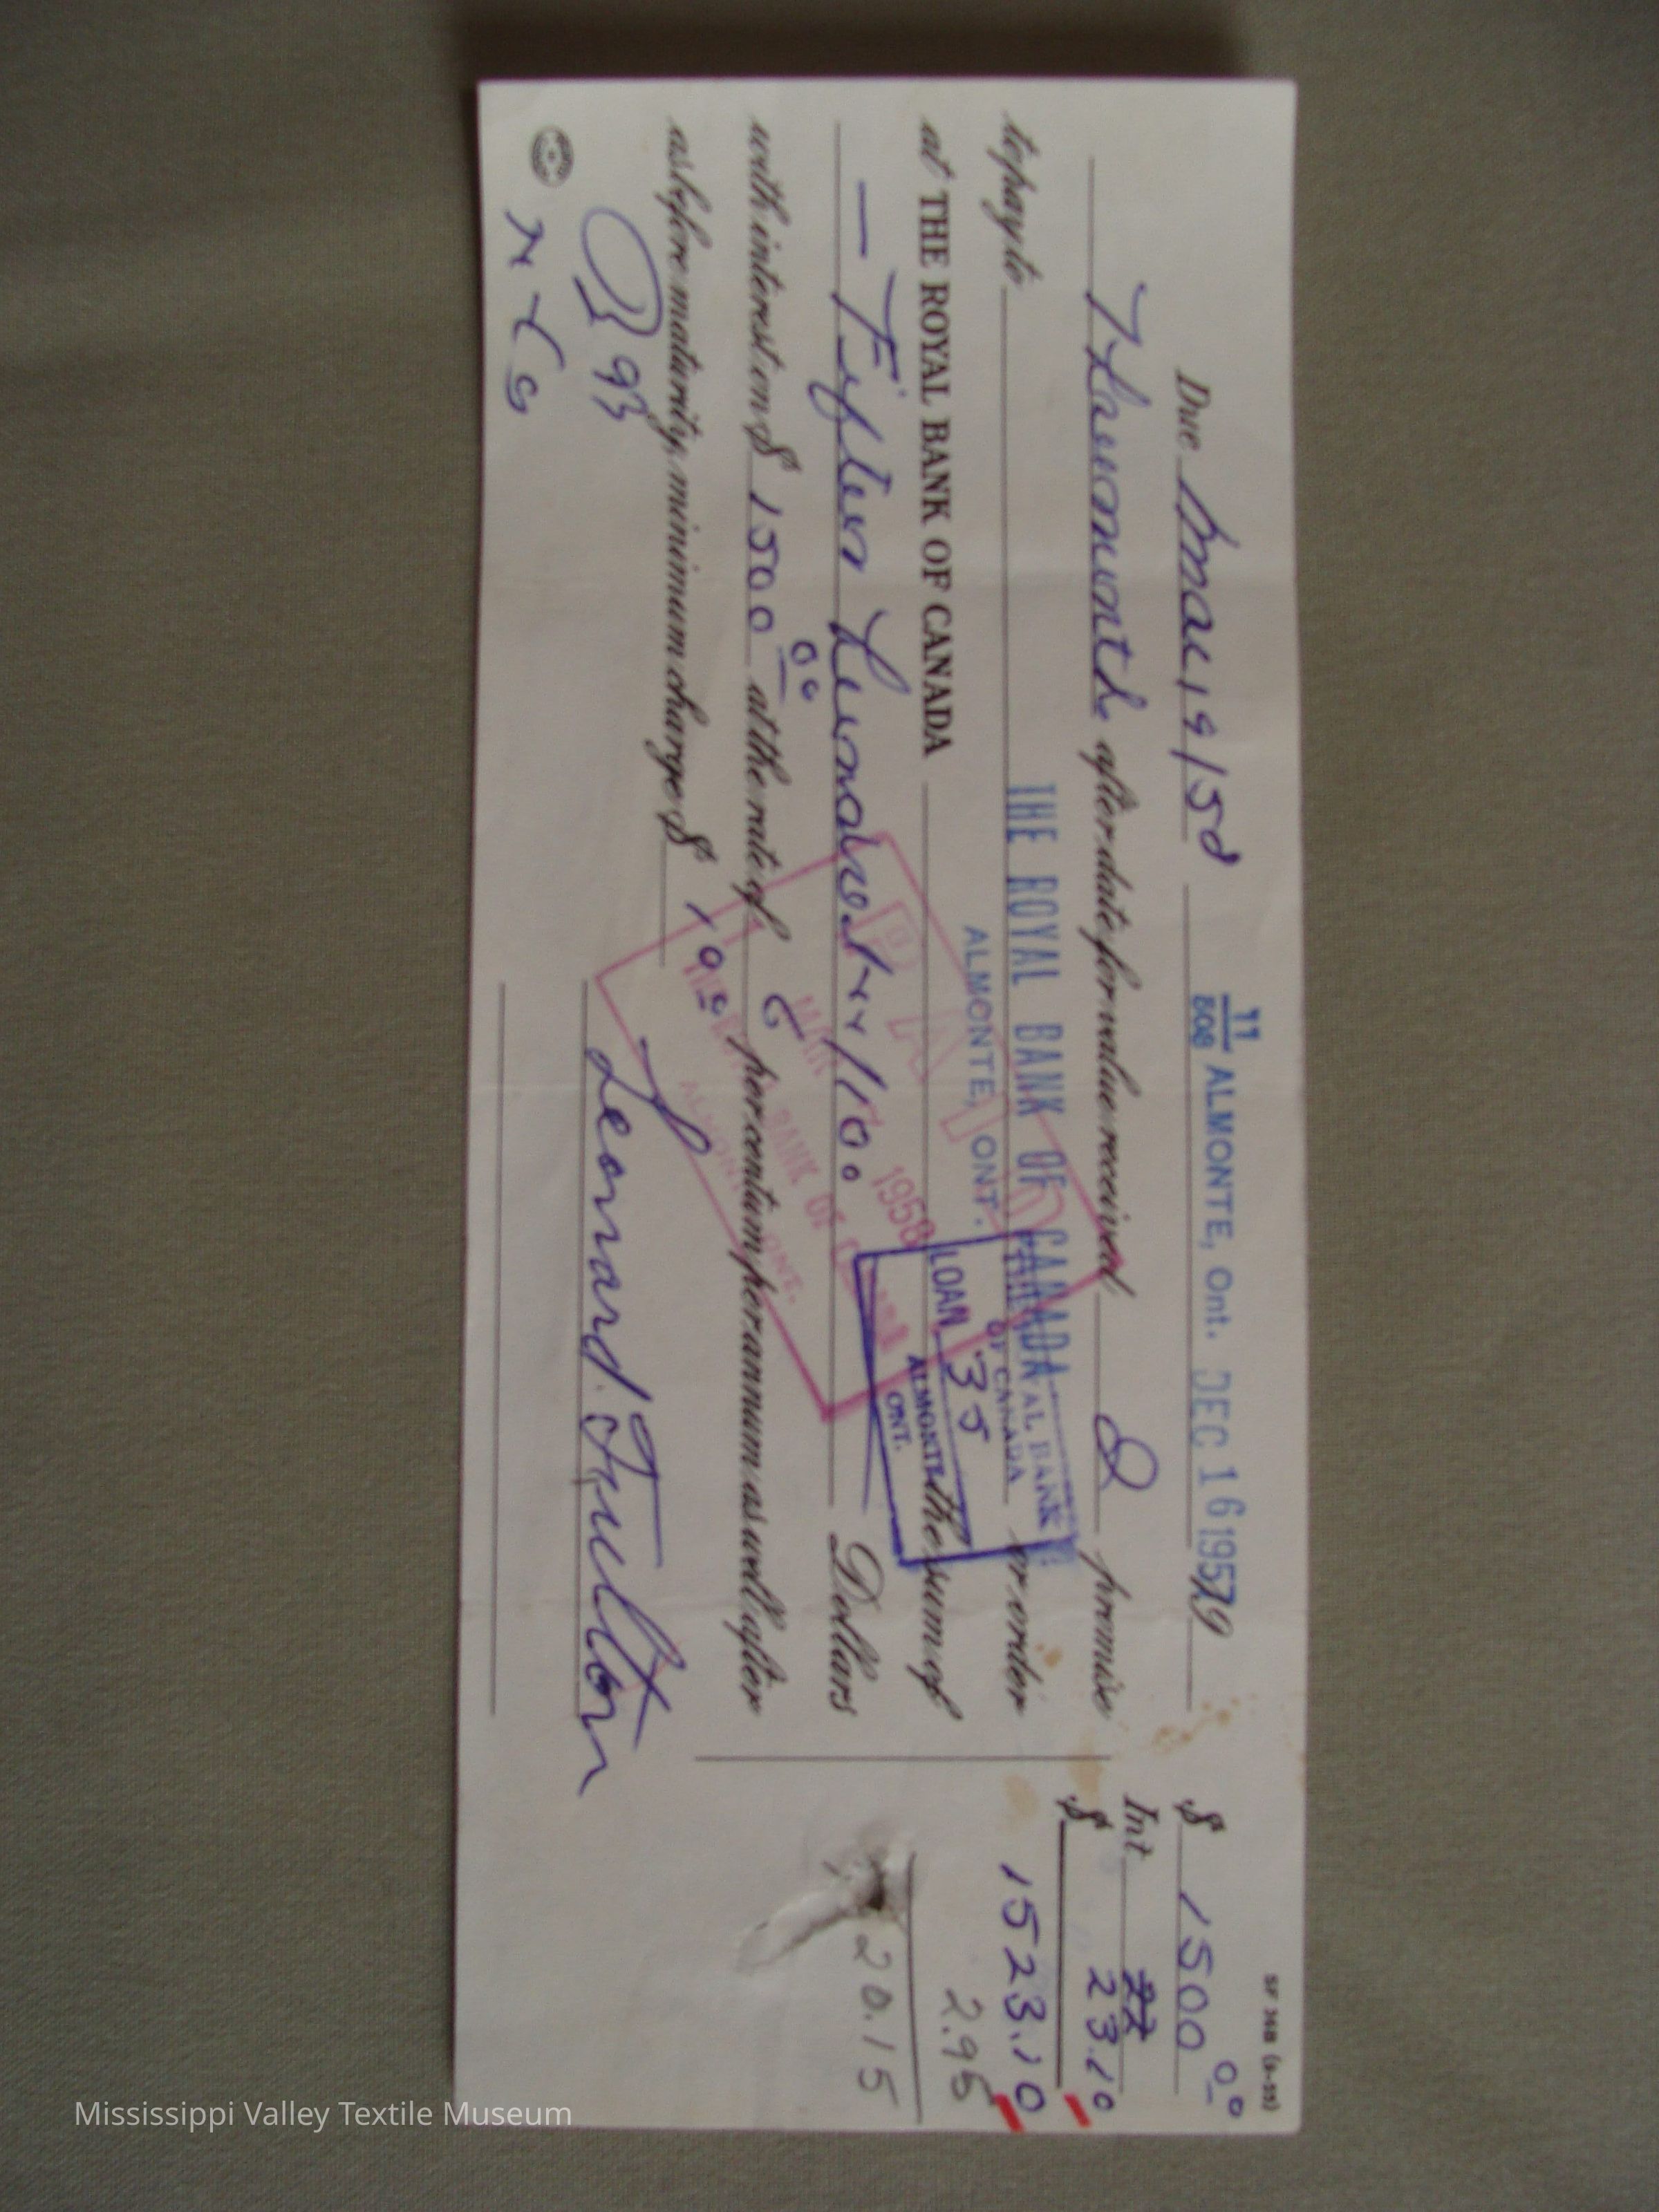 SF 36B (9-55)
Due Mar 19/58 11/508 ALMONTE, Ont. DEC 16 1957 19 $ 1500 00
Three months after date for value received I promise Int 22 23.10
to pay to THE ROYAL BANK OF CANADA or order $ 1523.10
ALMONTE, ONT.
at THE ROYAL BANK OF CANADA the sum of 2.95
— Fifteen Hundred xx/100 Dollars 20.15
with interest on $ 1500 00 at the rate of 6 per centum per annum as well after
as before maturity, minimum charge $ 1 00
Leonard Fulton
THE ROYAL BANK
OF CANADA
LOAN 35
ALMONTE
ONT.
PAID
MAR 1958
THE ROYAL BANK OF CANADA
ALMONTE, ONT.
Mississippi Valley Textile Museum